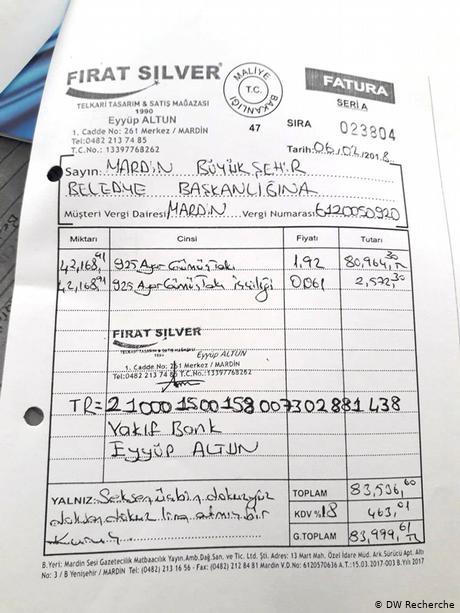 FIRAT SILVER
TELKARİ TASARIM & SATIŞ MAĞAZASI
1990
Eyyüp ALTUN
1. Cadde No: 261 Merkez / MARDİN
Tel:0482 213 74 85
T.C.No.: 13397768262
MALİYE T.C. BAKANLIĞI
47
FATURA
SERİ A
SIRA 023804
Tarih: 06/02/2018
Sayın: MARDİN BÜYÜKŞEHİR
BELEDİYE BAŞKANLIĞINA
Müşteri Vergi Dairesi MARDİN Vergi Numarası 6120050920
Miktarı Cinsi Fiyatı Tutarı
42,168,91 925 Ayar Gümüş Takı 1.92 80,964,30 TL
42,168,91 925 Ayar Gümüş Takı işçiliği 0,061 2,572,30
FIRAT SILVER
TELKARİ TASARIM & SATIŞ MAĞAZASI
1990 Eyyüp ALTUN
1. Cadde No: 261 Merkez / MARDİN
Tel:0482 213 74 85 T.C.No.: 13397768262
TR= 21000 1500 158 007302881438
Vakıf Bank
EYYÜP ALTUN
YALNIZ: Seksenüçbin dokuzyüz
doksan dokuz lira altmış bir
Kuruş
TOPLAM 83,536,60
KDV %18 463,01
G.TOPLAM 83,999,61 TL
B.Yeri: Mardin Sesi Gazetecilik Matbaacılık Yayın.Amb.Dağ.San. ve Tic. Ltd. Şti. Adres: 13 Mart Mah. Özel İdare Müd. Ark Sürücü Apt. Altı
No: 3 / B Yenişehir / MARDİN Tel: (0482) 213 16 56 - Fax: (0482) 212 84 81 Mardin V.D. No: 6120570636 A.T.: 15.03.2017-003 B.Yılı 2017
© DW Recherche